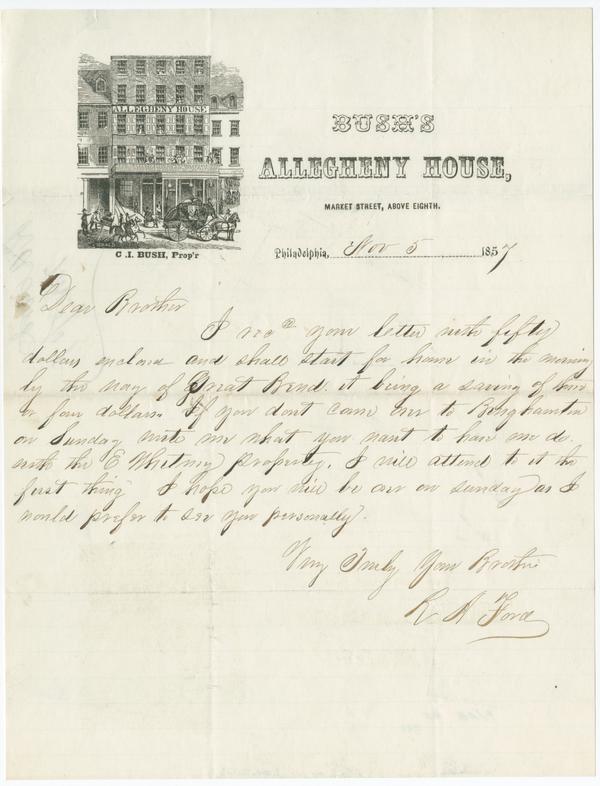 ALLEGHENY HOUSE
BUSH'S
ALLEGHENY HOUSE,
MARKET STREET, ABOVE EIGHTH.
C.I. BUSH, Prop'r
Philadelphia, Nov 5 1857
Dear Brother
I recd your letter with fifty
dollars enclosed and shall start for home in the morning
by the way of Great Bend. it being a saving of three
or four dollars. If you dont come over to Binghamton
on Sunday write me what you want to have me do
with the E Whitney property. I will attend to it the
first thing I hope you will be over on sunday as I
would prefer to see you personally.
Very Truly Your Brother
R A Ford